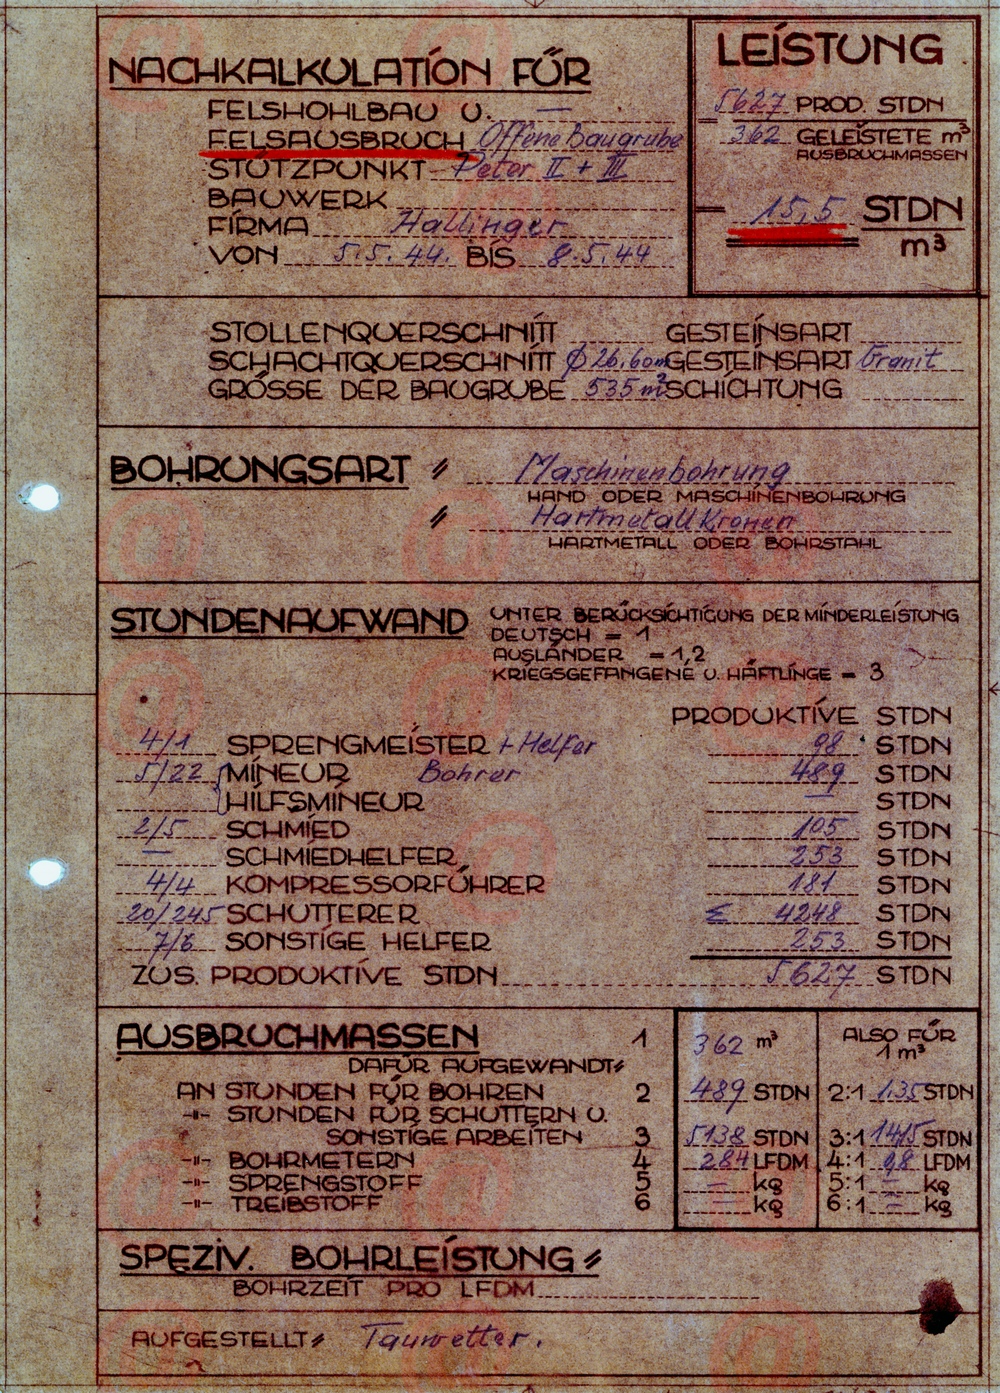 NACHKALKULATION FÜR
FELSHOHLBAU U. —
FELSAUSBRUCH Offene Baugrube
STÜTZPUNKT Peter II + III
BAUWERK
FIRMA Hallinger
VON 5.5.44. BIS 8.5.44
LEISTUNG
5627 PROD. STDN
= 362 GELEISTETE m³
AUSBRUCHMASSEN
= 15,5 STDN
m³
STOLLENQUERSCHNITT GESTEINSART
SCHACHTQUERSCHNITT Ø 26,60m GESTEINSART Granit
GRÖSSE DER BAUGRUBE 535 m² SCHICHTUNG
BOHRUNGSART " Maschinenbohrung
HAND ODER MASCHINENBOHRUNG
" Hartmetall Kronen
HARTMETALL ODER BOHRSTAHL
STUNDENAUFWAND UNTER BERÜCKSICHTIGUNG DER MINDERLEISTUNG
DEUTSCH = 1
AUSLÄNDER = 1,2
KRIEGSGEFANGENE U. HÄFTLINGE = 3
PRODUKTIVE STDN
4/1 SPRENGMEISTER + Helfer 98 STDN
5/22 MINEUR Bohrer 489 STDN
HILFSMINEUR — STDN
2/5 SCHMIED 105 STDN
— SCHMIEDHELFER 253 STDN
4/4 KOMPRESSORFÜHRER 181 STDN
20/245 SCHUTTERER Σ 4248 STDN
7/6 SONSTIGE HELFER 253 STDN
ZUS. PRODUKTIVE STDN 5627 STDN
AUSBRUCHMASSEN 1 362 m³ ALSO FÜR
1 m³
DAFÜR AUFGEWANDT"
AN STUNDEN FÜR BOHREN 2 489 STDN 2:1 1.35 STDN
-"- STUNDEN FÜR SCHUTTERN U.
SONSTIGE ARBEITEN 3 5138 STDN 3:1 14,15 STDN
-"- BOHRMETERN 4 284 LFDM 4:1 98 LFDM
-"- SPRENGSTOFF 5 — kg 5:1 — kg
-"- TREIBSTOFF 6 — kg 6:1 — kg
SPEZIV. BOHRLEISTUNG "
BOHRZEIT PRO LFDM
AUFGESTELLT" Tauwetter.